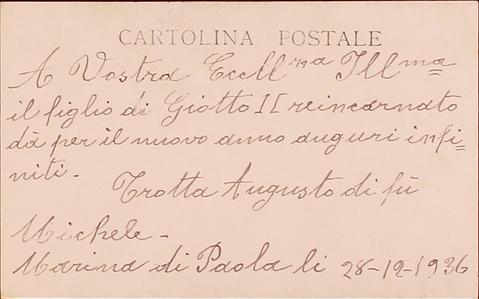 CARTOLINA POSTALE
A Vostra Eccll.ma Ill.ma
il figlio di Giotto II reincarnato
dà per il nuovo anno auguri infi=
niti-
Trotta Augusto di fù
Michele-
Marina di Paola li 28-12-1936